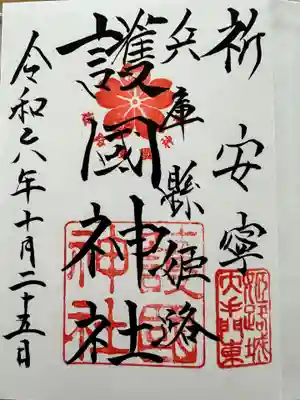 祈安寧
兵庫縣姫路
護國神社
令和六年十月二十五日
護國
神社
姫路城
大手門東